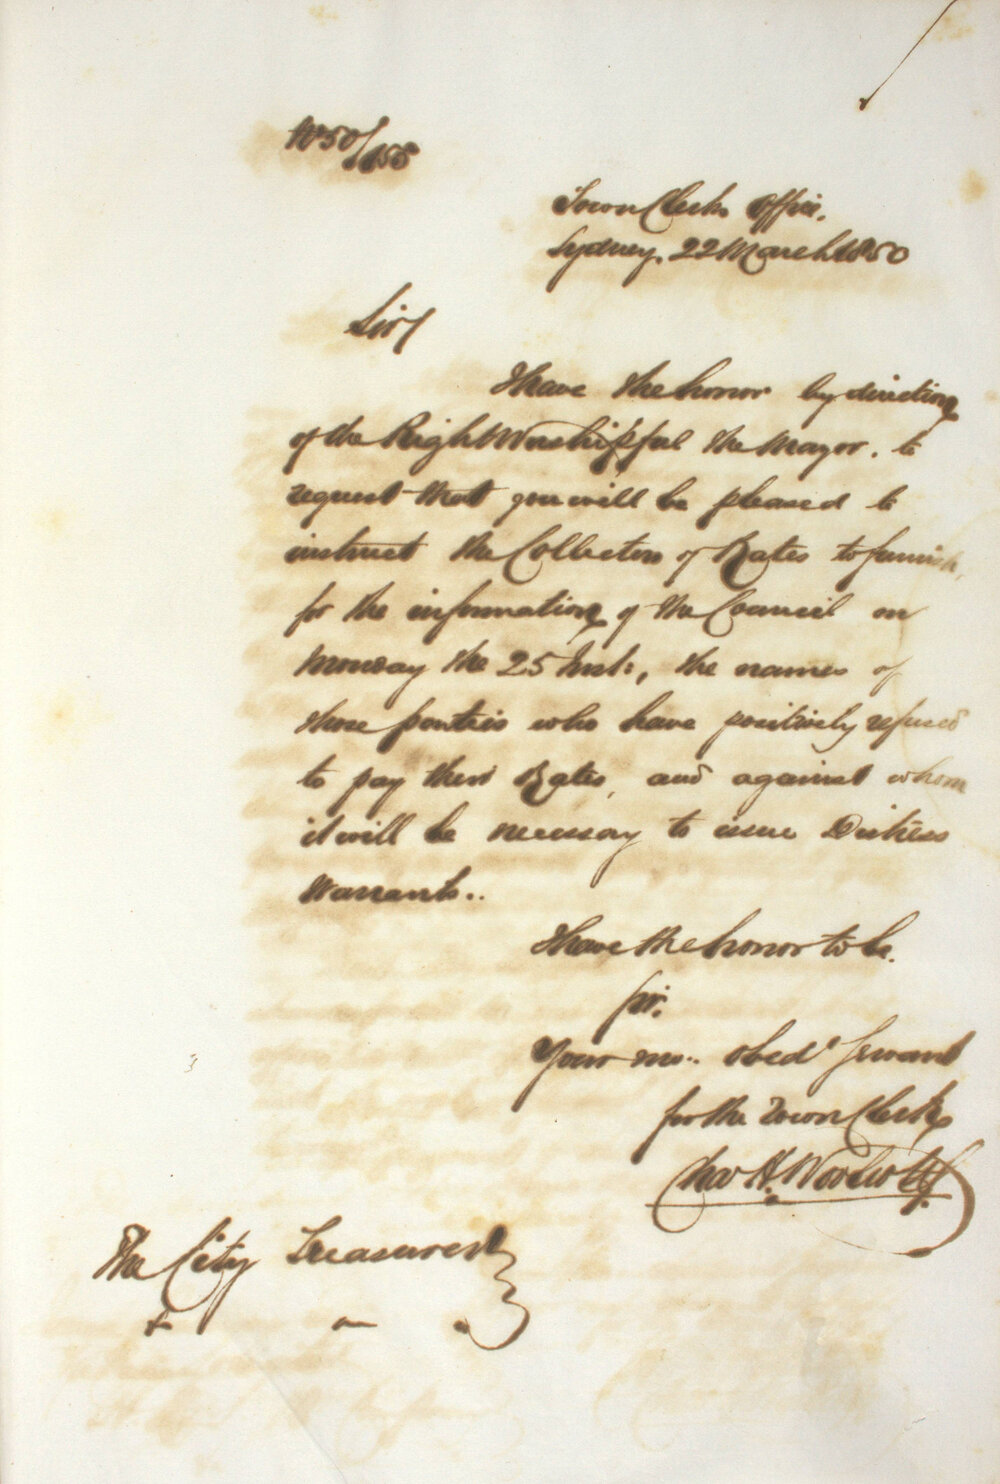 No 50/155
Town Clerks Office.
Sydney. 22 March 1850
Sir/
I have the honor by direction
of the Right Worshipful the Mayor. to
request that you will be pleased to
instruct the Collectors of Rates to furnish,
for the information of the Council on
Monday the 25 Inst:, the names of
those parties who have positively refused
to pay their Rates, and against whom
it will be necessary to issue Distress
Warrants..
I have the honor to be.
Sir.
Your mo.. obedt Servant
for the Town Clerk
Chas H. Woolcott
The City Treasurer